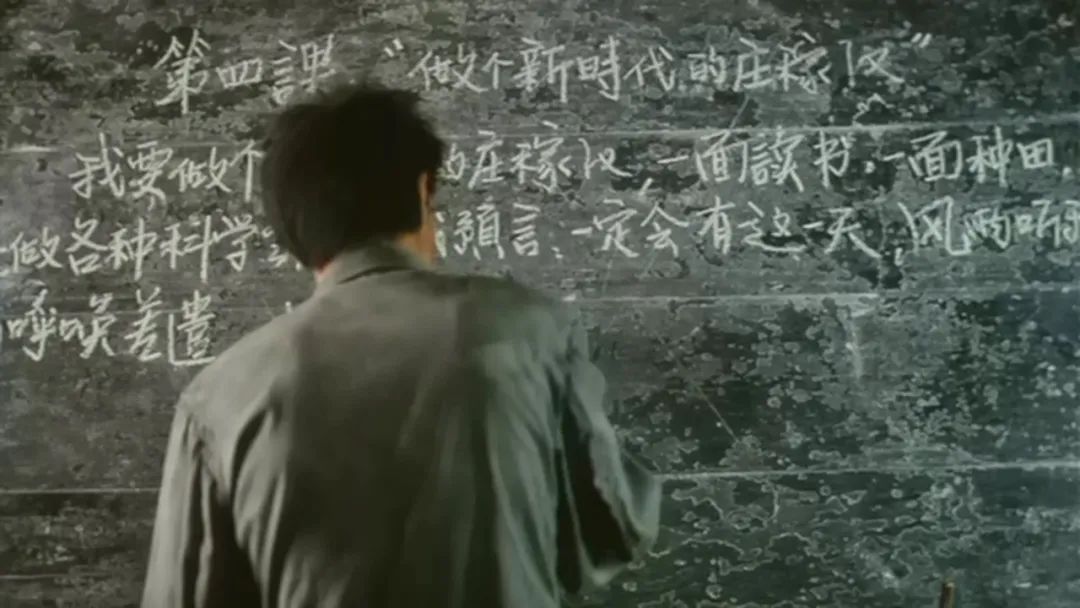 第四課 “做个新時代的庄稼汉”
我要做个的庄稼汉,一面讀书,一面种田,
做各种科学預言,一定会有这一天,风雨听
呼唤差遣